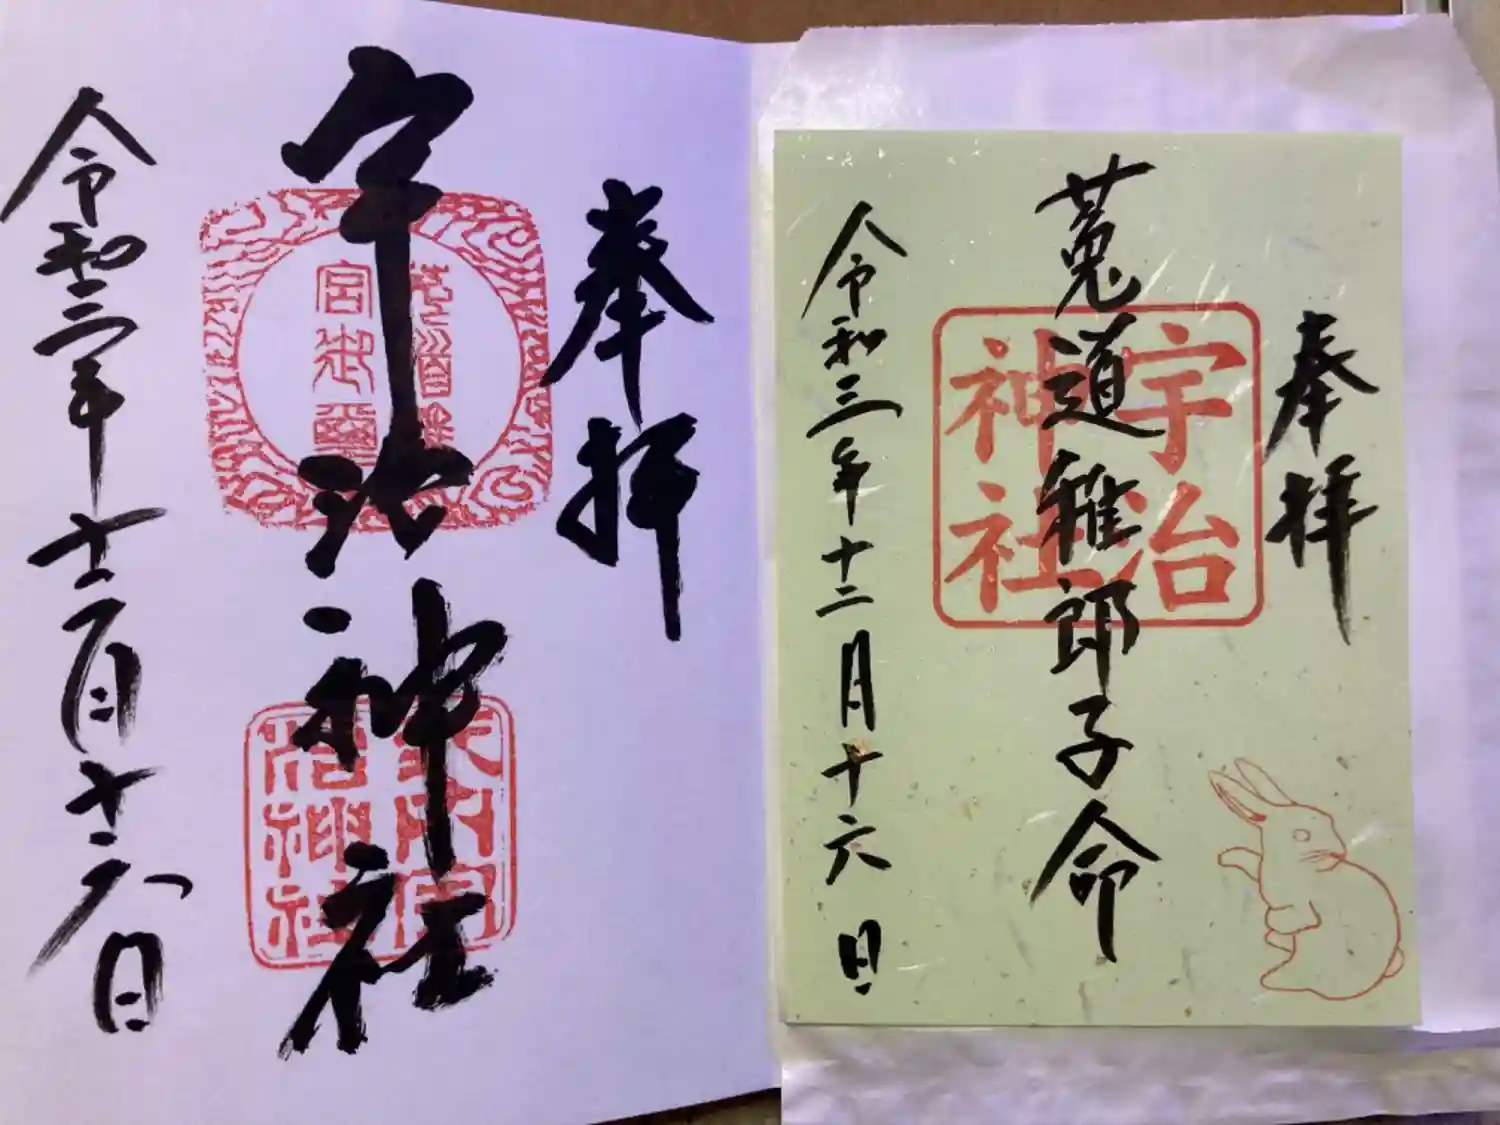 奉拝
宇治神社
令和三年十二月十六日
宮御璽
奉拝
菟道稚郎子命
宇治
神社
令和三年十二月十六日